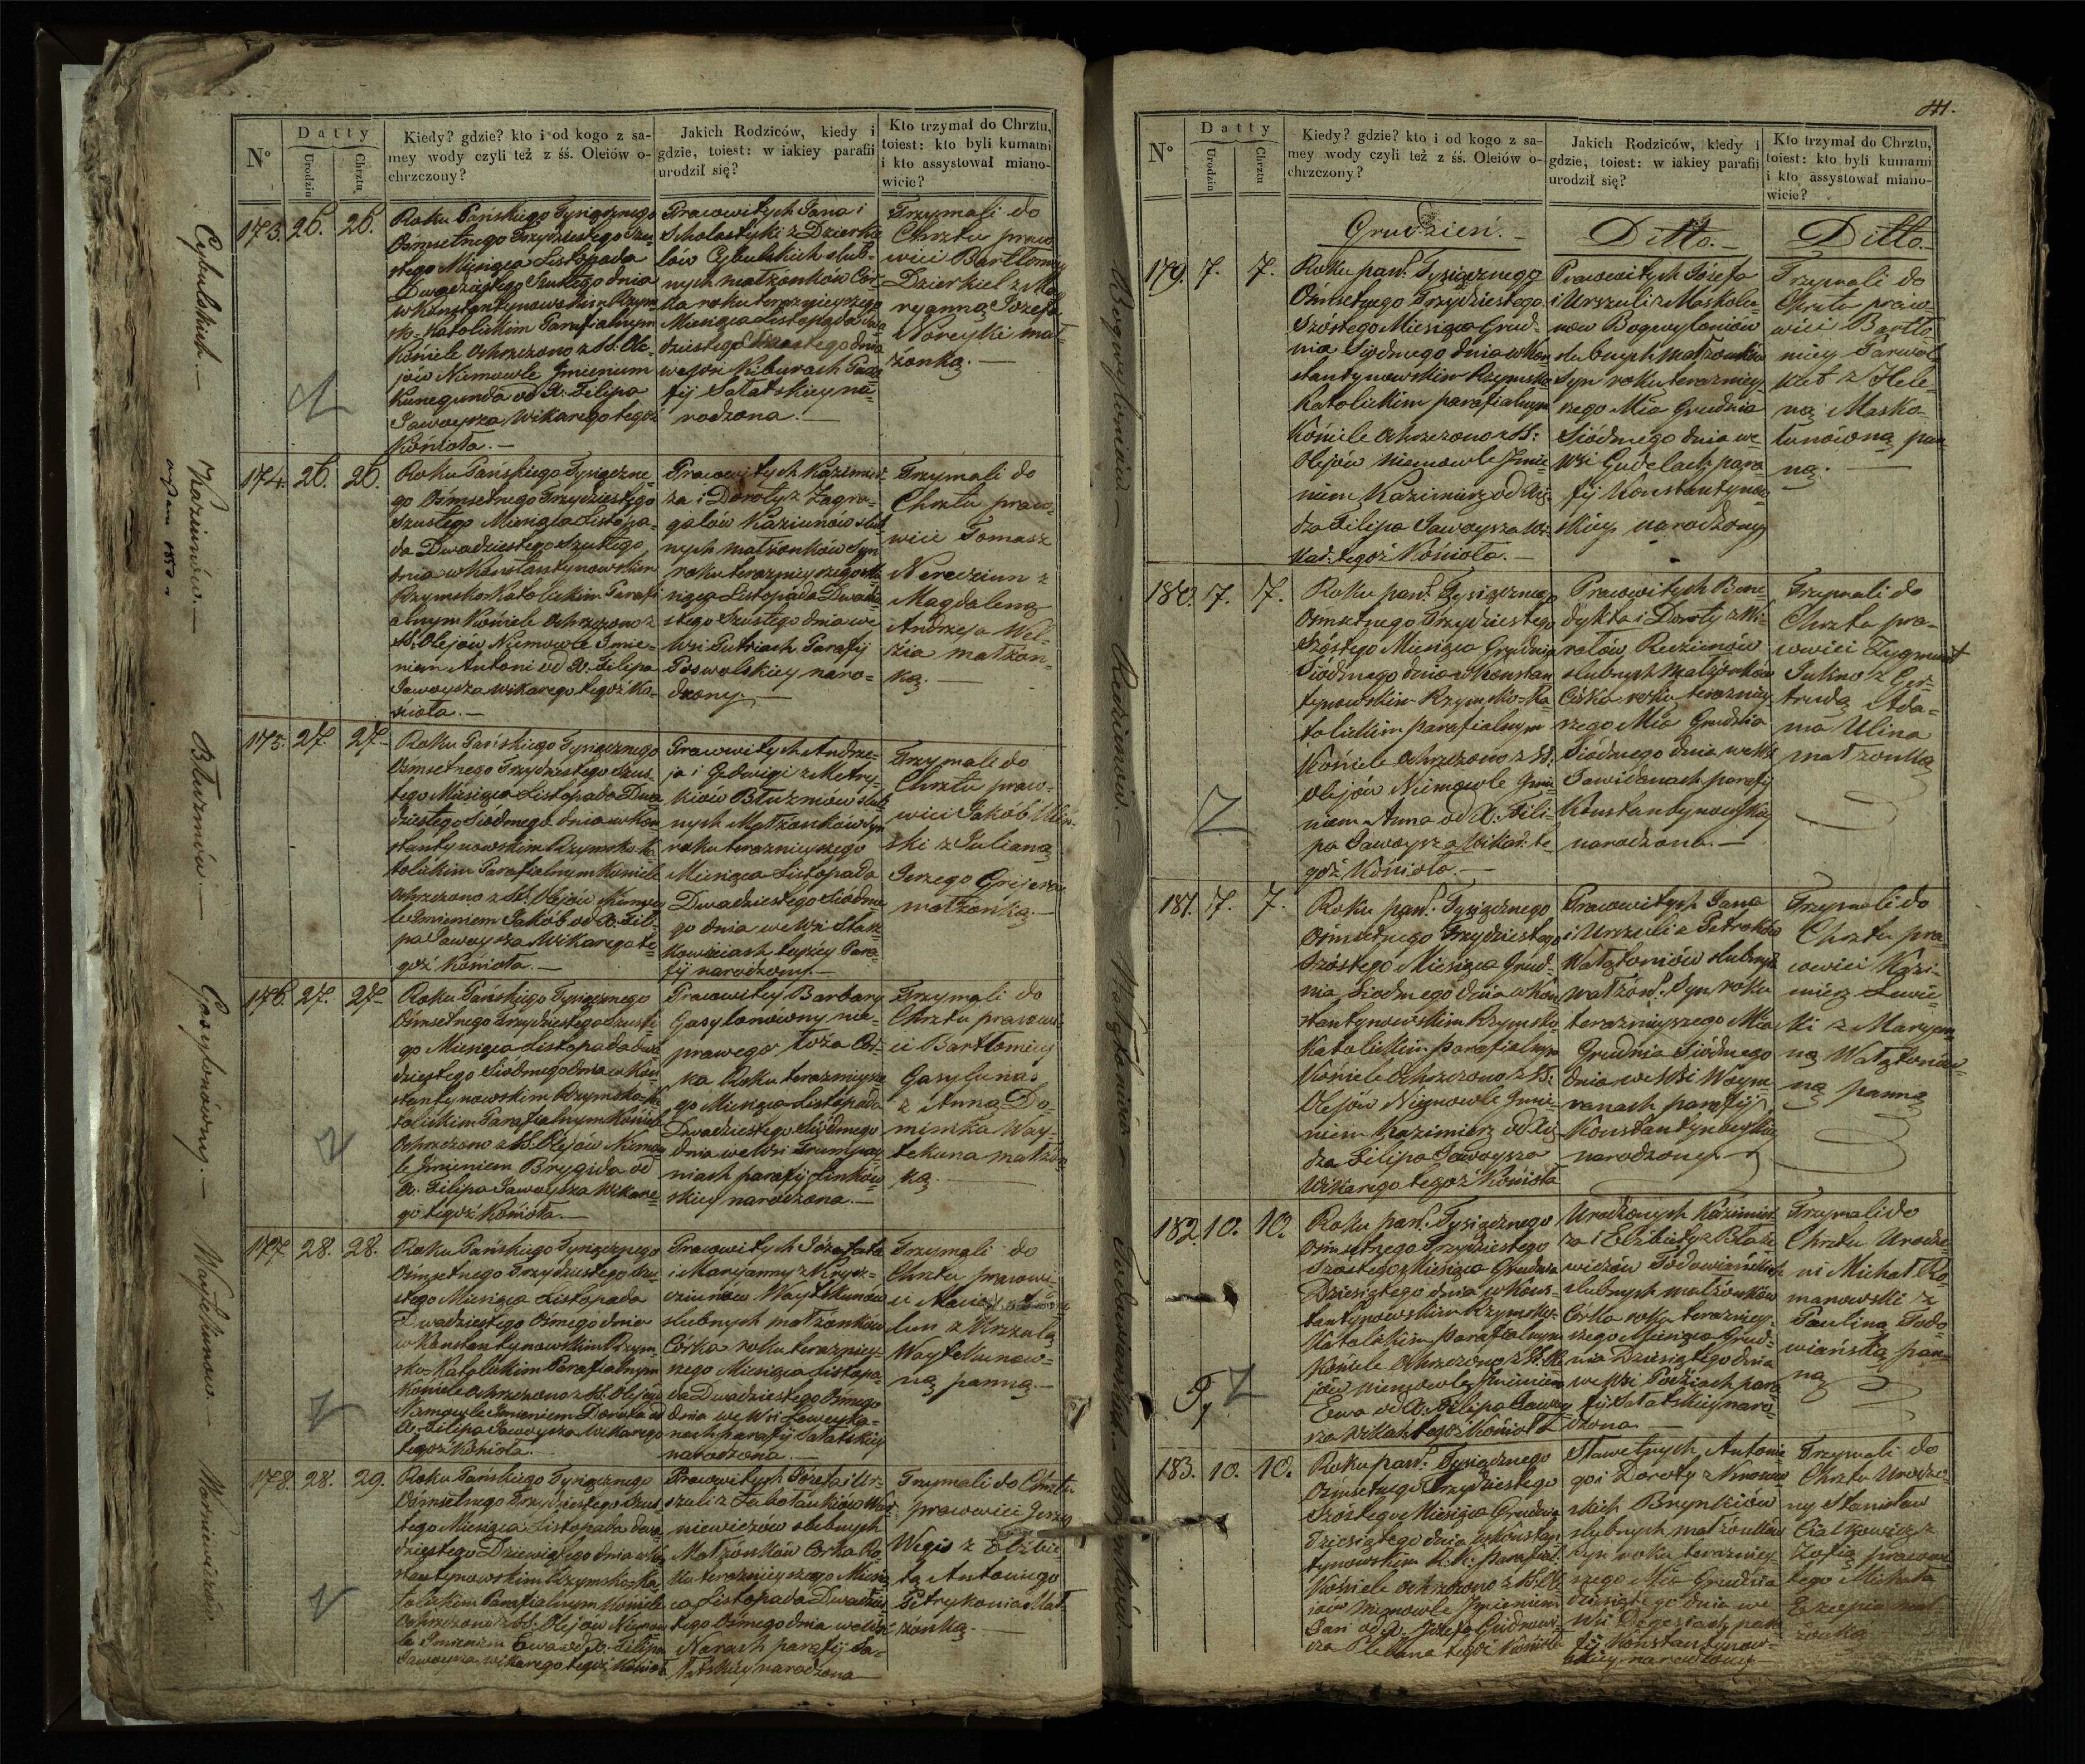 N°
Datty
Urodzin
Chrztu
Kiedy? gdzie? kto i od kogo z sa-
mey wody czyli też z śś. Oleiów o-
chrzczony?
Jakich Rodziców, kiedy i
gdzie, toiest: w iakiey parafii
urodził się?
Kto trzymał do Chrztu,
toiest: kto byli kumami
i kto assystował miano-
wicie?
Cybulskich.—
173. 26. 26.
Roku Pańskiego Tysiącznego
Ośmsetnego Trzydziestego Szu-
stego Miesiąca Listopada
Dwadziestego Szustego dnia
w Konstantynowskim Rzym-
sko-Katolickim Parafialnym
Kościele Ochrzczono z SS. Ole-
jów Niemowle Imieniem
Kunegunda od X. Filipa
Jawoysza Wikarego tegoż
Kościoła.—
Pracowitych Jana i
Scholastyki z Dzierkie-
low Cybulskich slub-
nych małżonków Cór-
ka roku teraznieyszego
Miesiąca Listopada dwa-
dziestego Szustego dnia
we wsi Kiburach Para-
fij Sałatskiey na-
rodzona.—
Trzymali do
Chrztu praco-
wici Bartłomiey
Dzierkiel z Ma-
ryanną Jozefa
Noreyki mał-
żonką.—
Kaziunów.—
174. 26. 26.
Roku Pańskiego Tysiączne-
go Ośmsetnego Trzydziestego
Szustego Miesiąca Listopa-
da Dwadziestego Szustego
dnia w Konstantynowskim
Rzymsko-Katolickim Parafi-
alnym Kościele Ochrzczono z
SS. Olejów Niemowle Imie-
niem Antoni od X. Filipa
Jawoysza wikarego tegoż Ko-
ścioła.—
Pracowitych Kazimier-
za i Doroty z Zagro-
galów Kaziunów slub-
nych małżonków Syn
roku teraznieyszego Mie-
siąca Listopada Dwadzie-
stego Szustego dnia we
Wsi Putriach Parafij
Poswolskiey naro-
dzony.—
Trzymali do
Chrztu praco-
wici Tomasz
Neredziun z
Magdaleną
Andrzeja Wel-
zia małżon-
ką.—
Błuzniów.—
175. 27. 27.
Roku Pańskiego Tysiącznego
Ośmsetnego Trzydziestego Szus-
tego Miesiąca Listopada Dwa-
dziestego Siódmego dnia w Kon-
stantynowskim Rzymsko-Ka-
tolickim Parafialnym Kościele
Ochrzczono z SS. Olejów Niemow-
le Imieniem Jakób od X. Fili-
pa Jawoysza Wikarego te-
goż Kościoła.—
Pracowitych Andrze-
ja i Jedwigi z Metry-
kiów Błuzniów slub-
nych Małżonków Syn
roku teraznieyszego
Miesiąca Listopada
Dwadziestego Siódme-
go dnia we Wsi
teyżey Para-
fij narodzony.—
Trzymali do
Chrztu praco-
wici Jakób Ulin-
ski z Julianą
Jerzego
małżonką.—
Gasylonówny.—
176. 27. 27.
Roku Pańskiego Tysiącznego
Ośmsetnego Trzydziestego Szuste-
go Miesiąca Listopada dwa-
dziestego Siódmego dnia w Kon-
stantynowskim Rzymsko-Ka-
tolickim Parafialnym Kościele
Ochrzczono z SS. Olejów Niemow-
le Imieniem Brygida od
X. Filipa Jawoysza Wikare-
go tegoż Kościoła.—
Pracowitey Barbary
Gasylonówny nie-
prawego łoża Cór-
ka Roku teraznieysze-
go Miesiąca Listopada
Dwadziestego Siódmego
dnia we Wsi Trumpay-
niach parafij Linków-
skiey narodzona.—
Trzymali do
Chrztu pracowi-
ci Bartłomiey
Gasylunas
z Anną Do-
minika Way-
tekuna małżon-
ką.—
Waytekunow.—
177. 28. 28.
Roku Pańskiego Tysiącznego
Ośmsetnego Trzydziestego Szu-
stego Miesiąca Listopada
Dwadziestego Osmego dnia
w Konstantynowskim Rzym-
sko-Katolickim Parafialnym
Kościele Ochrzczono z SS. Olejów
Niemowle Imieniem Dorota od
X. Filipa Jawoysza Wikarego
tegoż Kościoła.—
Pracowitych Józafata
i Maryanny z
Waytekunów
slubnych małżonków
Córka roku terazniey-
szego Miesiąca Listopa-
da Dwadziestego Ósmego
dnia we Wsi
nach parafij Sałatskiey
narodzona.—
Trzymali do
Chrztu pracowi-
ci
lun z Urszulą
Waytekunow-
ną panną.—
Warniewiczów
178. 28. 29.
Roku Pańskiego Tysiącznego
Ośmsetnego Trzydziestego Szus-
tego Miesiąca Listopada dwa-
dziestego Dziewiątego dnia w Kon-
stantynowskim Rzymsko-Ka-
tolickim Parafialnym Kościele
Ochrzczono z SS. Olejów Niemow-
le Imieniem Ewa od X. Filipa
Jawoysza wikarego tegoż Kościoła
Pracowitych Józefa i Ur-
szuli z War-
niewiczów slubnych
Małżonków Córka Ro-
ku teraznieyszego Miesią-
ca Listopada Dwadzies-
tego Ósmego dnia we Wsi
Narach parafij Sa-
łatskiey narodzona
Trzymali do Chrztu
pracowici Jerzy
Wegis z Elżbie-
tą Antoniego
Petrykonia Mał-
żonką.—
111.
N°
Datty
Urodzin
Chrztu
Kiedy? gdzie? kto i od kogo z sa-
mey wody czyli też z śś. Oleiów o-
chrzczony?
Jakich Rodziców, kiedy i
gdzie, toiest: w iakiey parafii
urodził się?
Kto trzymał do Chrztu,
toiest: kto byli kumami
i kto assystował miano-
wicie?
Grudzień.—
Ditto.—
Ditto.—
Bogwyloniów.—
179. 7. 7.
Roku pań. Tysiącznego
Ośmsetnego Trzydziestego
Szóstego Miesiąca Grud-
nia Siódmego dnia w Kon-
stantynowskim Rzymsko-
Katolickim parafialnym
Kościele Ochrzczono z SS.
Olejów Niemowle Imie-
niem Kazimierz od Xię-
dza Filipa Jawoysza Wi-
kar. tegoż Kościoła.—
Pracowitych Józefa
i Urszuli z Maskolu-
now Bogwyloniów
slubnych Małżonków
Syn roku terazniey-
szego Mca Grudnia
Siódmego dnia we
Wsi Gudelach para-
fij Konstantynow-
skiey narodzony
Trzymali do
Chrztu praco-
wici Bartło-
miey
z Hele-
ną Masko-
lunówną pan-
ną.—
Reziunów.—
180. 7. 7.
Roku pań. Tysiącznego
Ośmsetnego Trzydziestego
Szóstego Miesiąca Grudnia
Siódmego dnia w Konstan-
tynowskim Rzymsko-Ka-
tolickim parafialnym
Kościele Ochrzczono z SS.
Olejów Niemowle Imie-
niem Anna od X. Fili-
pa Jawoysza Wikar. te-
goż Kościoła.—
Pracowitych Bene-
dykta i Doroty z Mi-
ralów Reziunów
slubnych Małżonków
Córka roku terazniey-
szego Mca Grudnia
Siódmego dnia we Wsi
Jawidanach parafij
Konstantynowskiey
narodzona.—
Trzymali do
Chrztu pra-
cowici Zygmunt
Jukno z Ger-
trudą Ada-
ma Ulina
małżonką
Watątoniów
181. 7. 7.
Roku pań. Tysiącznego
Ośmsetnego Trzydziestego
Szóstego Miesiąca Grud-
nia Siódmego dnia w Kon-
stantynowskim Rzymsko-
Katolickim parafialnym
Kościele Ochrzczono z SS.
Olejów Niemowle Imie-
niem Kazimierz od Xię-
dza Filipa Jawoysza
Wikarego tegoż Kościoła
Pracowitych Jana
i Urszuli z
Watątoniów slubnych
małżon. Syn roku
teraznieyszego Mca
Grudnia Siódmego
dnia we Wsi Woym-
ranach parafij
Konstantynowskiey
narodzony.
Trzymali do
Chrztu pra-
cowici Kazi-
mierz Lewic-
ki z Maryan-
ną Watątonów-
ną panną
Podowiańskich.—
182. 10. 10.
Roku pań. Tysiącznego
Ośmsetnego Trzydziestego
Szóstego Miesiąca Grudnia
Dziesiątego dnia w Kons-
tantynowskim Rzymsko-
Katolickim Parafialnym
Kościele Ochrzczono z SS. Ole-
jów Niemowle Imieniem
Ewa od X. Filipa Jawoy-
sza Wikar. tegoż Kościoła
Urodzonych Kazimier-
za i Elżbiety z Błaże-
wiczów Podowiańskich
slubnych małżonków
Córka roku terazniey-
szego Miesiąca Grud-
nia Dziesiątego dnia
we Wsi Podziach para-
fij Sałatskiey naro-
dzona.—
Trzymali do
Chrztu Urodze-
ni Michał Ro-
manowski z
Pauliną Podo-
wiańską pan-
ną
Brynkiów.—
183. 10. 10.
Roku pań. Tysiącznego
Ośmsetnego Trzydziestego
Szóstego Miesiąca Grudnia
Dziesiątego dnia w Konstan-
tynowskim R. K. parafial.
Kościele Ochrzczono z SS. Ole-
jów Niemowle Imieniem
Jan od X. Józefa
Plebana tegoż Kościoła
Sławetnych Antonie-
go i Doroty z
Brynkiów
slubnych małżonków
syn roku terazniey-
szego Mca Grudnia
dziesiątego dnia we
Wsi Degesiach para-
fij Konstantynow-
skiey narodzony
Trzymali do
Chrztu Urodzo-
ny Stanisław
z
Zofią pracowi-
tego Michała
mał-
żonką